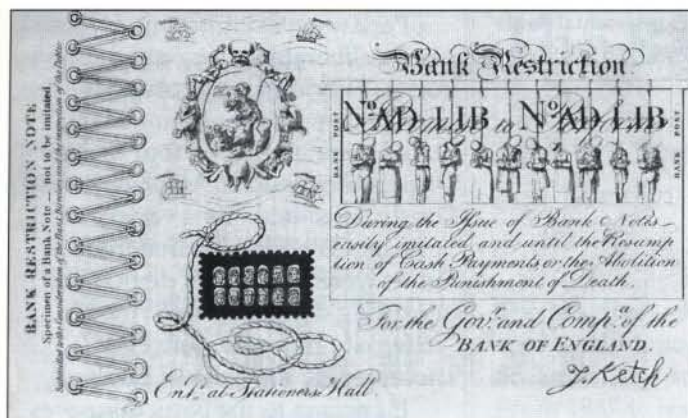 BANK RESTRICTION NOTE
Specimen of a Bank Note — not to be imitated.
Submitted to the Consideration of the Bank Directors and the inspection of the Public.
Bank Restriction.
BANK POST
Nº. AD LIB Nº. AD LIB
BANK POST
During the Issue of Bank Notes
easily imitated, and until the Resump
tion of Cash Payments, or the Abolition
of the Punishment of Death.
For the Govr. and Compa. of the
BANK OF ENGLAND.
J. Ketch
Entd. at Stationers Hall.